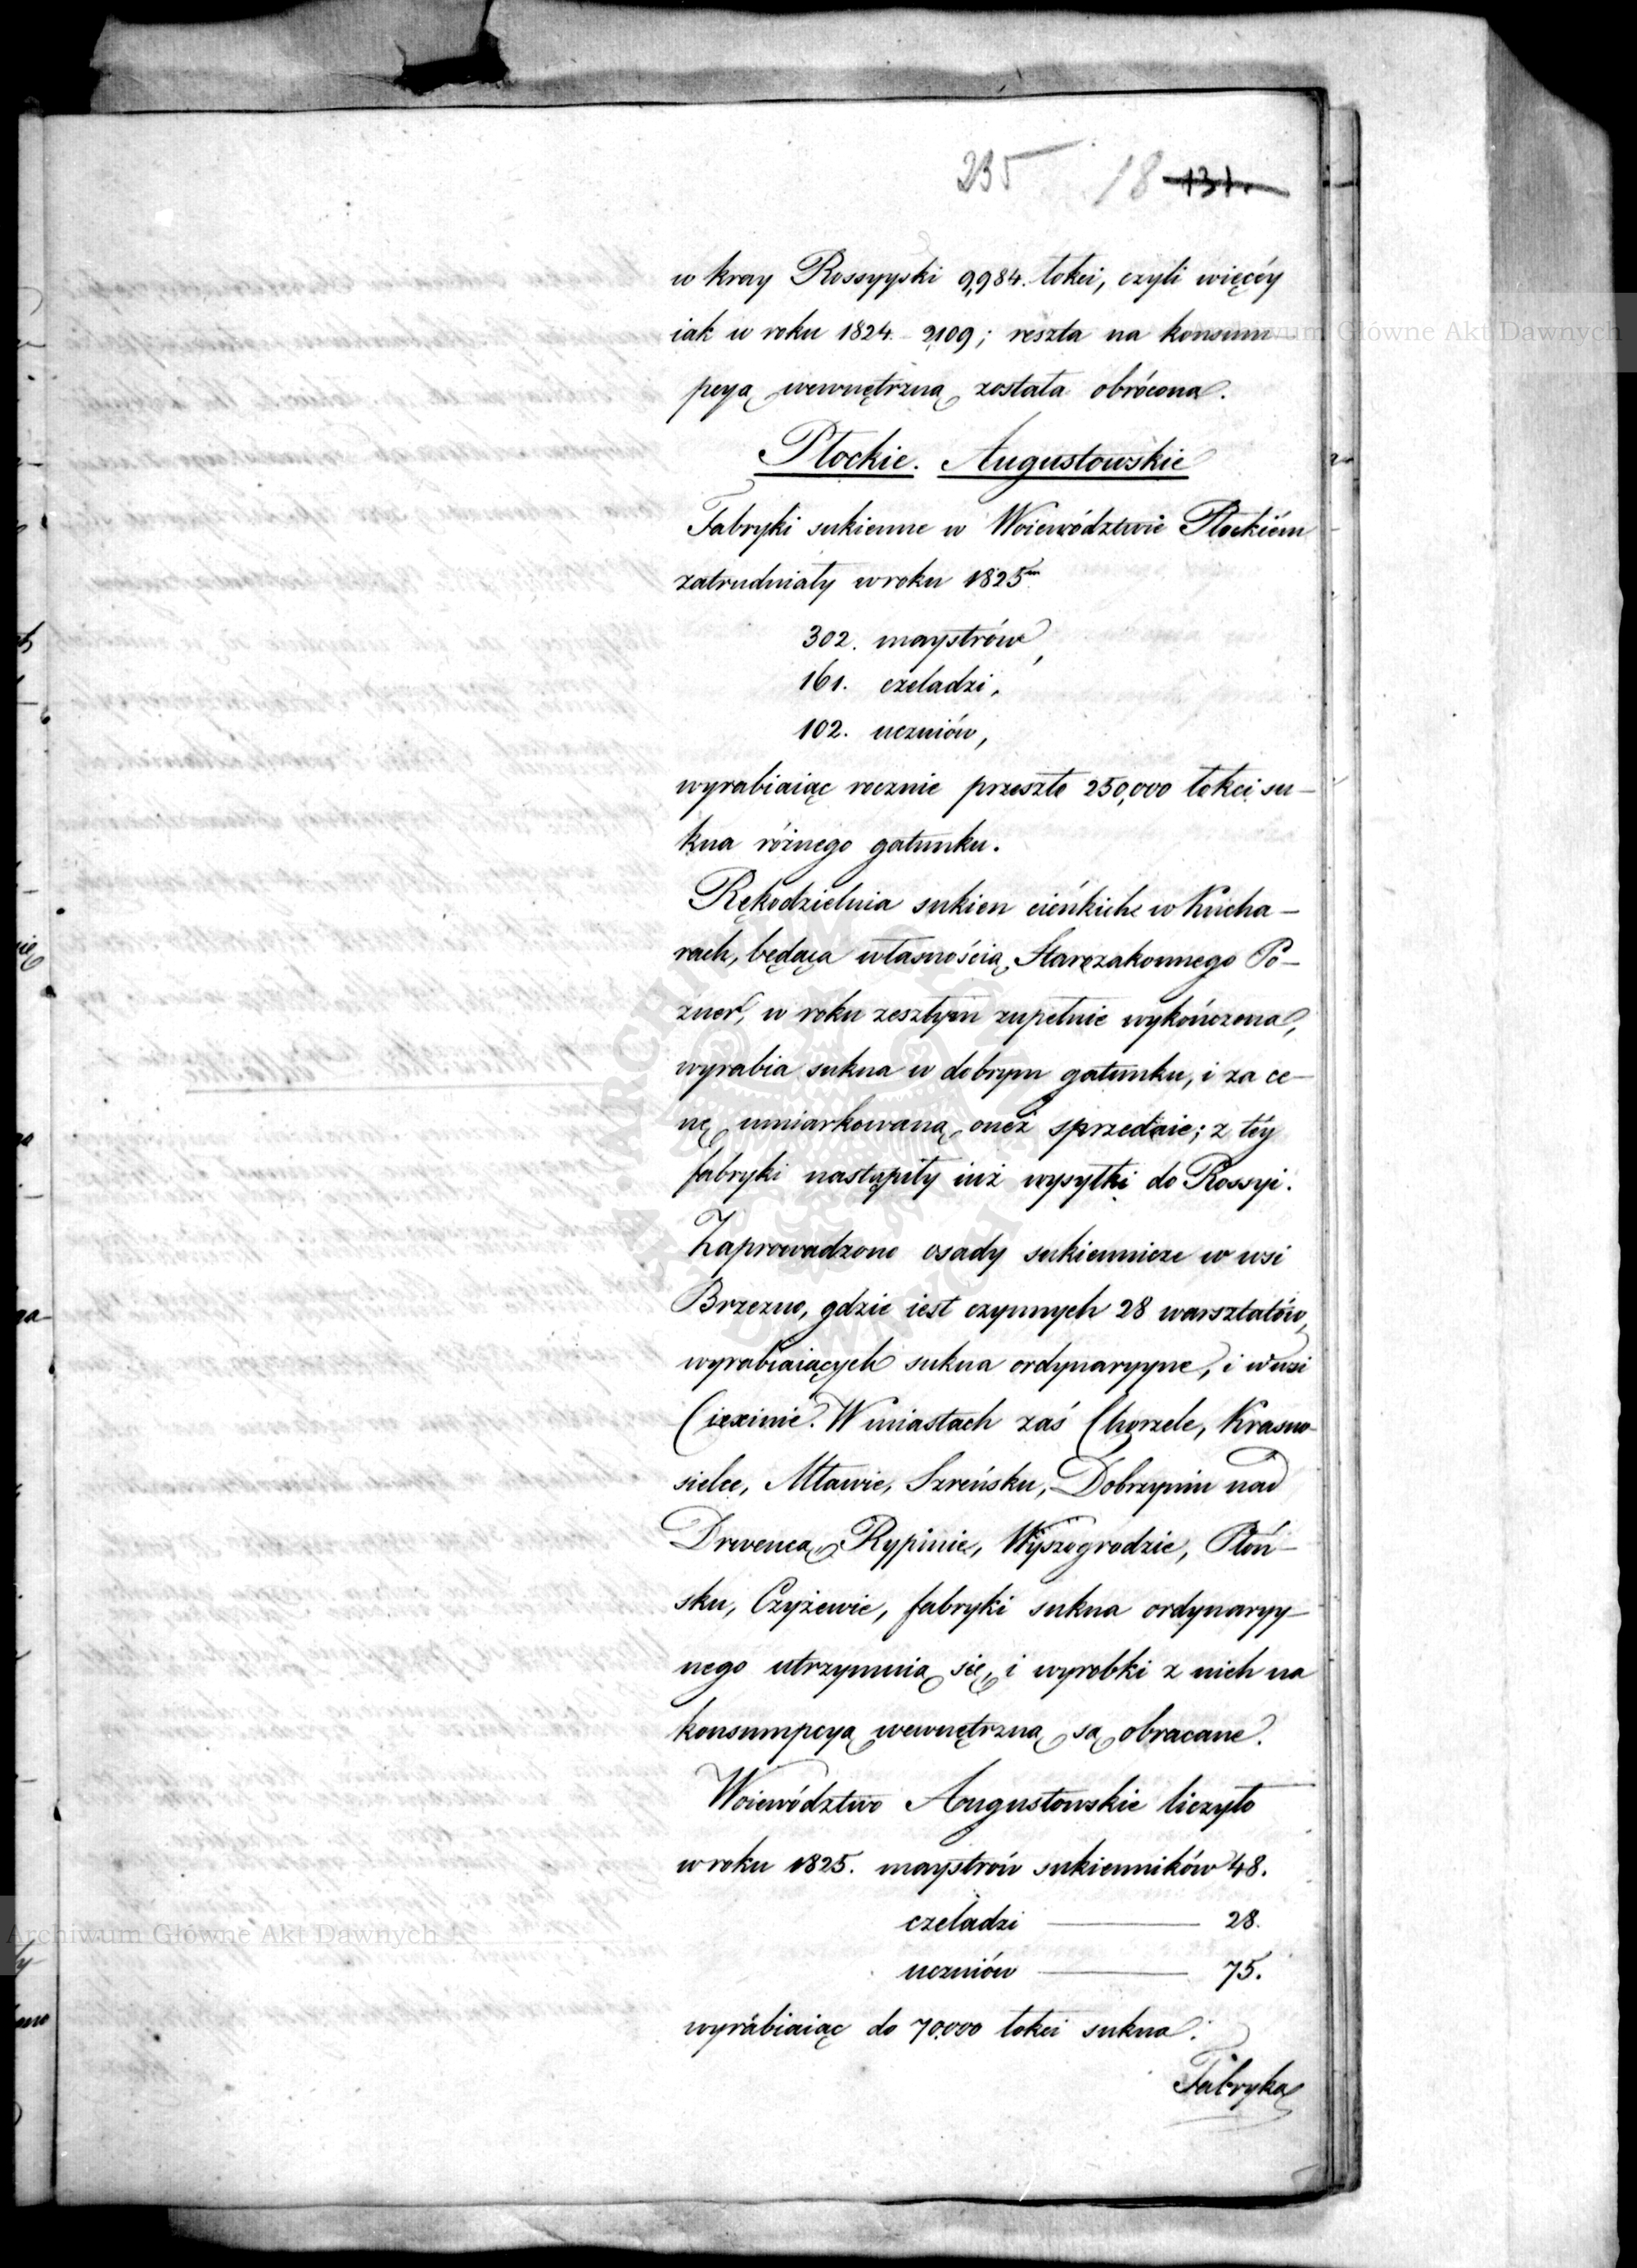 235 18 131.
w kray Rossyyski 9,984. łokci, czyli więcéy
iak w roku 1824. 2,109; reszta na konsum-
pcyą wewnętrzną została obrócona.
Płockie. Augustowskie
Fabryki sukienne w Woiewództwie Płockiém
zatrudniały w roku 1825m
302. maystrów,
161. czeladzi,
102. uczniów,
wyrabiaiąc rocznie przeszło 250,000 łokci su-
kna różnego gatunku.
Rękodzielnia sukien cieńkich w Kucha-
rach, będąca własnością Starozakonnego Po-
zner, w roku zeszłym zupełnie wykończona,
wyrabia sukna w dobrym gatunku, i za ce-
nę umiarkowaną onéż sprzedaie; z téy
fabryki nastąpiły iuż wysyłki do Rossyi.
Zaprowadzono osady sukiennicze w wsi
Brzezno, gdzie iest czynnych 28 warsztatów,
wyrabiaiących sukna ordynaryyne, i w wsi
W miastach zaś Chorzele, Krasno-
sielce, Mławie, Szreńsku, Dobrzyniu nad
Drwencą, Rypinie, Wyszogrodzie, Płoń-
sku, Czyżewie, fabryki sukna ordynaryy-
nego utrzymuią się, i wyrobki z nich na
konsumpcyą wewnętrzną są obracane.
Woiewództwo Augustowskie liczyło
w roku 1825. maystrów sukienników 48.
czeladzi ——— 28.
uczniów ——— 75.
wyrabiaiąc do 70,000 łokci sukna.
Fabryka
Archiwum Główne Akt Dawnych
Archiwum Główne Akt Dawnych